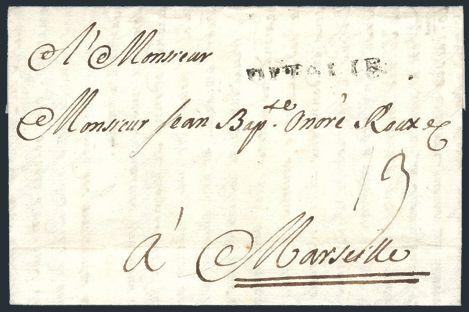 A Monsieur
D'ITALIE
Monsieur Jean Bap.te Onoré Roux &
13
à Marseille